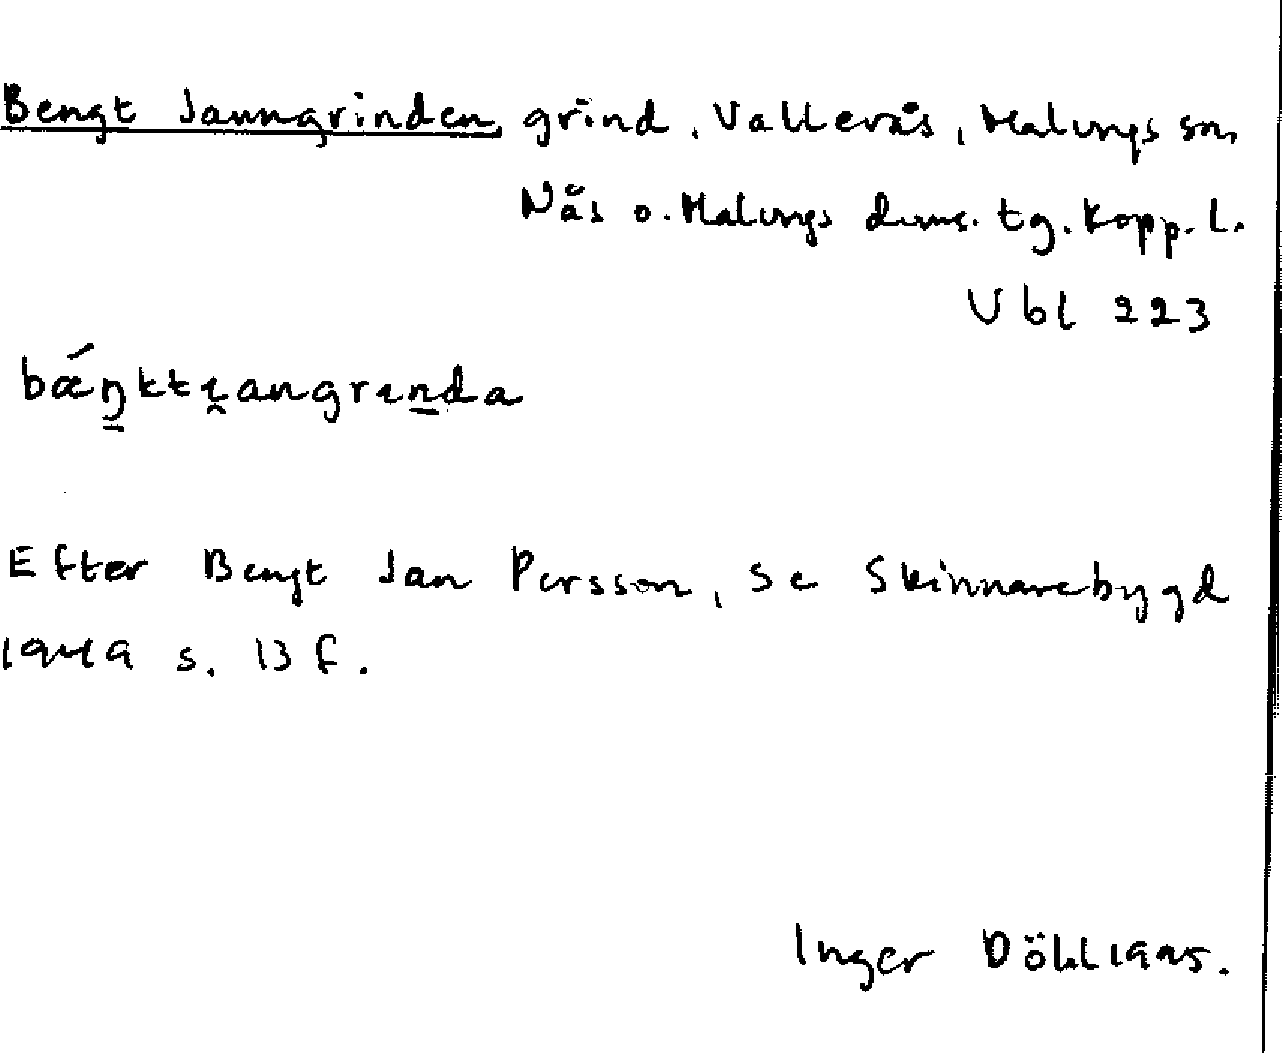 Bengt Janngrinden, grind, Vallerås, Malungs sn,
Nås o. Malungs doms. tg. Kopp. l.
Ubl 223
Efter Bengt Jan Persson, se Skinnarebygd
1949 s. 13 f.
Inger Döhl